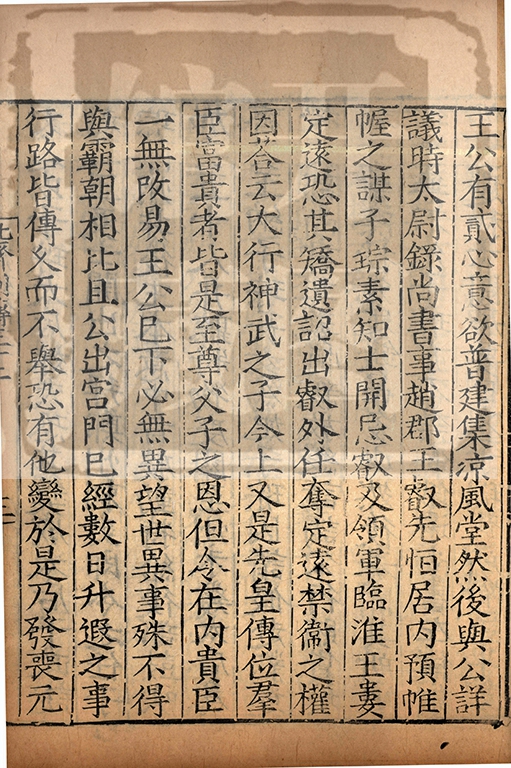 王公有貳心意欲普建集凉風堂然後與公詳
議時太尉錄尚書事趙郡王叡先恒居內預帷
幄之謀子琮素知士開忌叡及領軍臨淮王婁
定遠恐其矯遺詔出叡外任奪定遠禁衞之權
因荅云大行神武之子今上又是先皇傳位羣
臣富貴者皆是至尊父子之恩但令在內貴臣
一無改易王公巳下必無異望世異事殊不得
與霸朝相比且公出宫門巳經數日升遐之事
行路皆傳久而不舉恐有他變於是乃發喪元